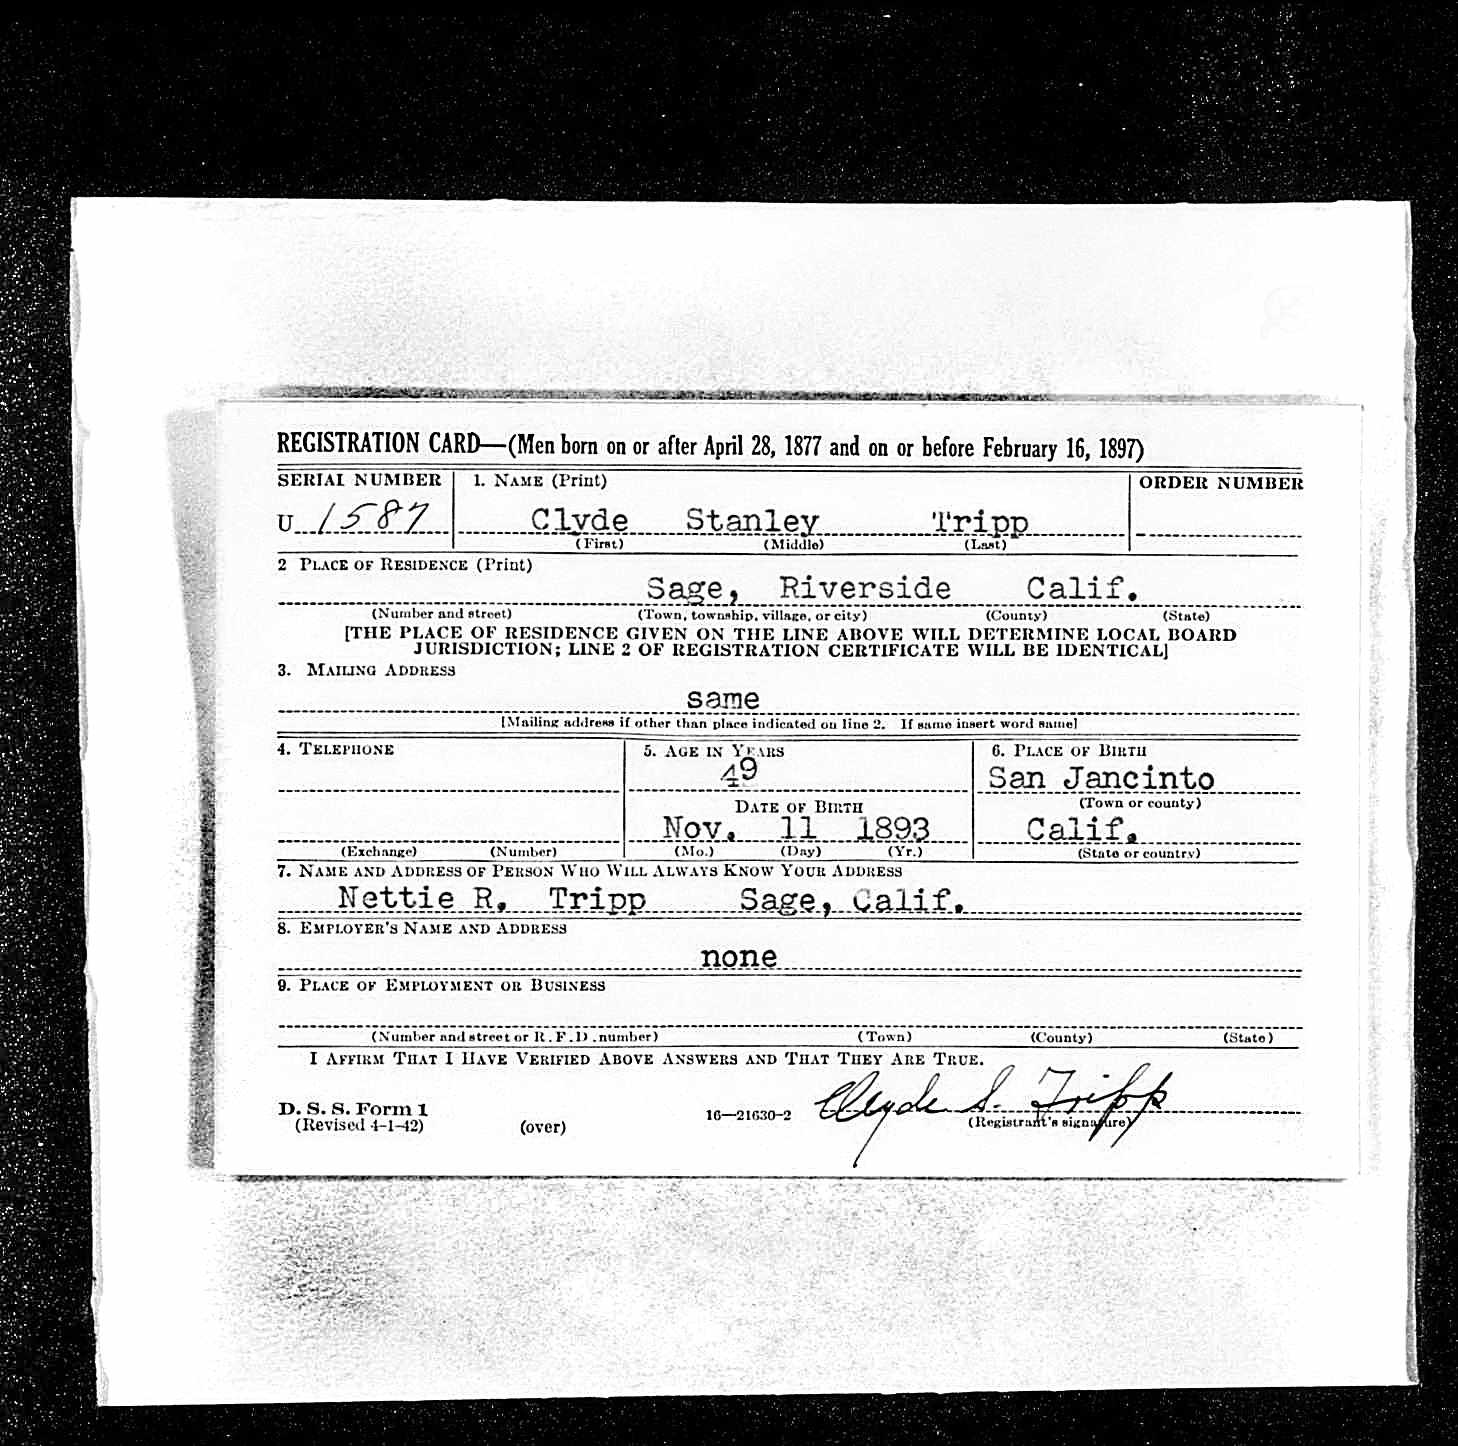 REGISTRATION CARD—(Men born on or after April 28, 1877 and on or before February 16, 1897)
SERIAL NUMBER 1. NAME (Print) ORDER NUMBER
U 1587 Clyde Stanley Tripp
(First) (Middle) (Last)
2 PLACE OF RESIDENCE (Print)
Sage, Riverside Calif.
(Number and street) (Town, township, village, or city) (County) (State)
[THE PLACE OF RESIDENCE GIVEN ON THE LINE ABOVE WILL DETERMINE LOCAL BOARD
JURISDICTION; LINE 2 OF REGISTRATION CERTIFICATE WILL BE IDENTICAL]
3. MAILING ADDRESS
same
[Mailing address if other than place indicated on line 2. If same insert word same]
4. TELEPHONE 5. AGE IN YEARS 6. PLACE OF BIRTH
49 San Jancinto
DATE OF BIRTH (Town or county)
Nov. 11 1893 Calif.
(Exchange) (Number) (Mo.) (Day) (Yr.) (State or country)
7. NAME AND ADDRESS OF PERSON WHO WILL ALWAYS KNOW YOUR ADDRESS
Nettie R. Tripp Sage, Calif.
8. EMPLOYER'S NAME AND ADDRESS
none
9. PLACE OF EMPLOYMENT OR BUSINESS
(Number and street or R. F. D. number) (Town) (County) (State)
I AFFIRM THAT I HAVE VERIFIED ABOVE ANSWERS AND THAT THEY ARE TRUE.
Clyde S. Tripp
D. S. S. Form 1
(Revised 4-1-42) (over) 16—21630-2 (Registrant's signature)